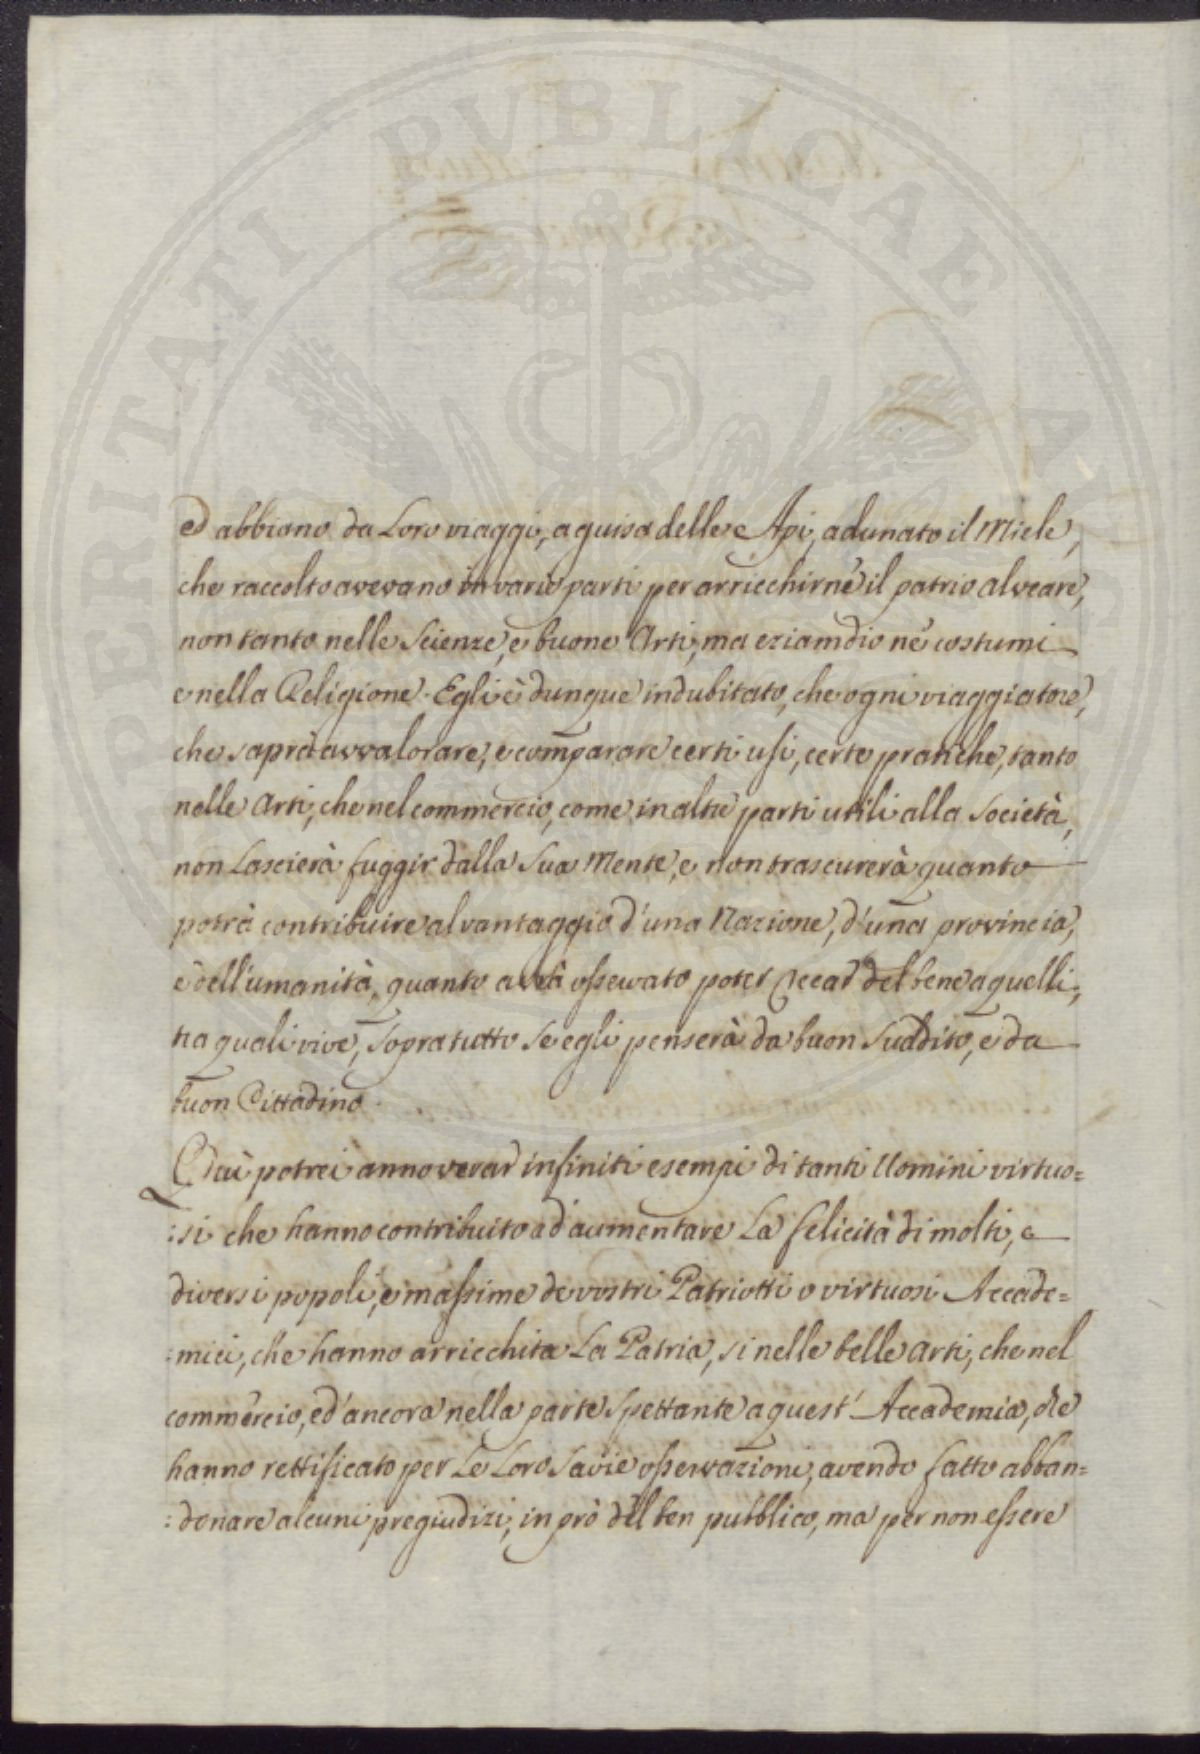 PERITATI PUBLICAE
ed abbiano da Loro viaggi, a guisa delle Api, adunato il Miele,
che raccolto avevano in varie parti per arricchirne il patrio alveare,
non tanto nelle Scienze, e buone Arti, ma eziamdio ne' costumi
e nella Religione. Egli è dunque indubitato, che ogni viaggiatore,
che saprà avvalorare, e comparare certi usi, certe pratiche, tanto
nelle Arti, che nel commercio, come in altre parti utili alla Società,
non Lascierà fuggir dalla Sua Mente, e non trascurerà quanto
potrà contribuire al vantaggio d'una Nazione, d'una provincia,
e dell'umanità, quanto avrà osservato poter recar del bene a quelli,
tra quali vive, sopra tutto se egli penserà da buon Suddito, e da
buon Cittadino.
Quì potrei annoverar infiniti esempi di tanti Uomini virtuo=
:si che hanno contribuito ad aumentare La felicità di molti, e
diversi popoli, e massime de vostri Patriotti o virtuosi Accade=
:mici, che hanno arricchita La Patria, si nelle belle arti, che nel
commercio, ed' ancora nella parte Spettante a quest' Accademia, che
hanno rettificato per Le Loro Savie osservazioni, avendo fatto abban=
:donare alcuni pregiudizi, in prò del ben pubblico, ma per non essere